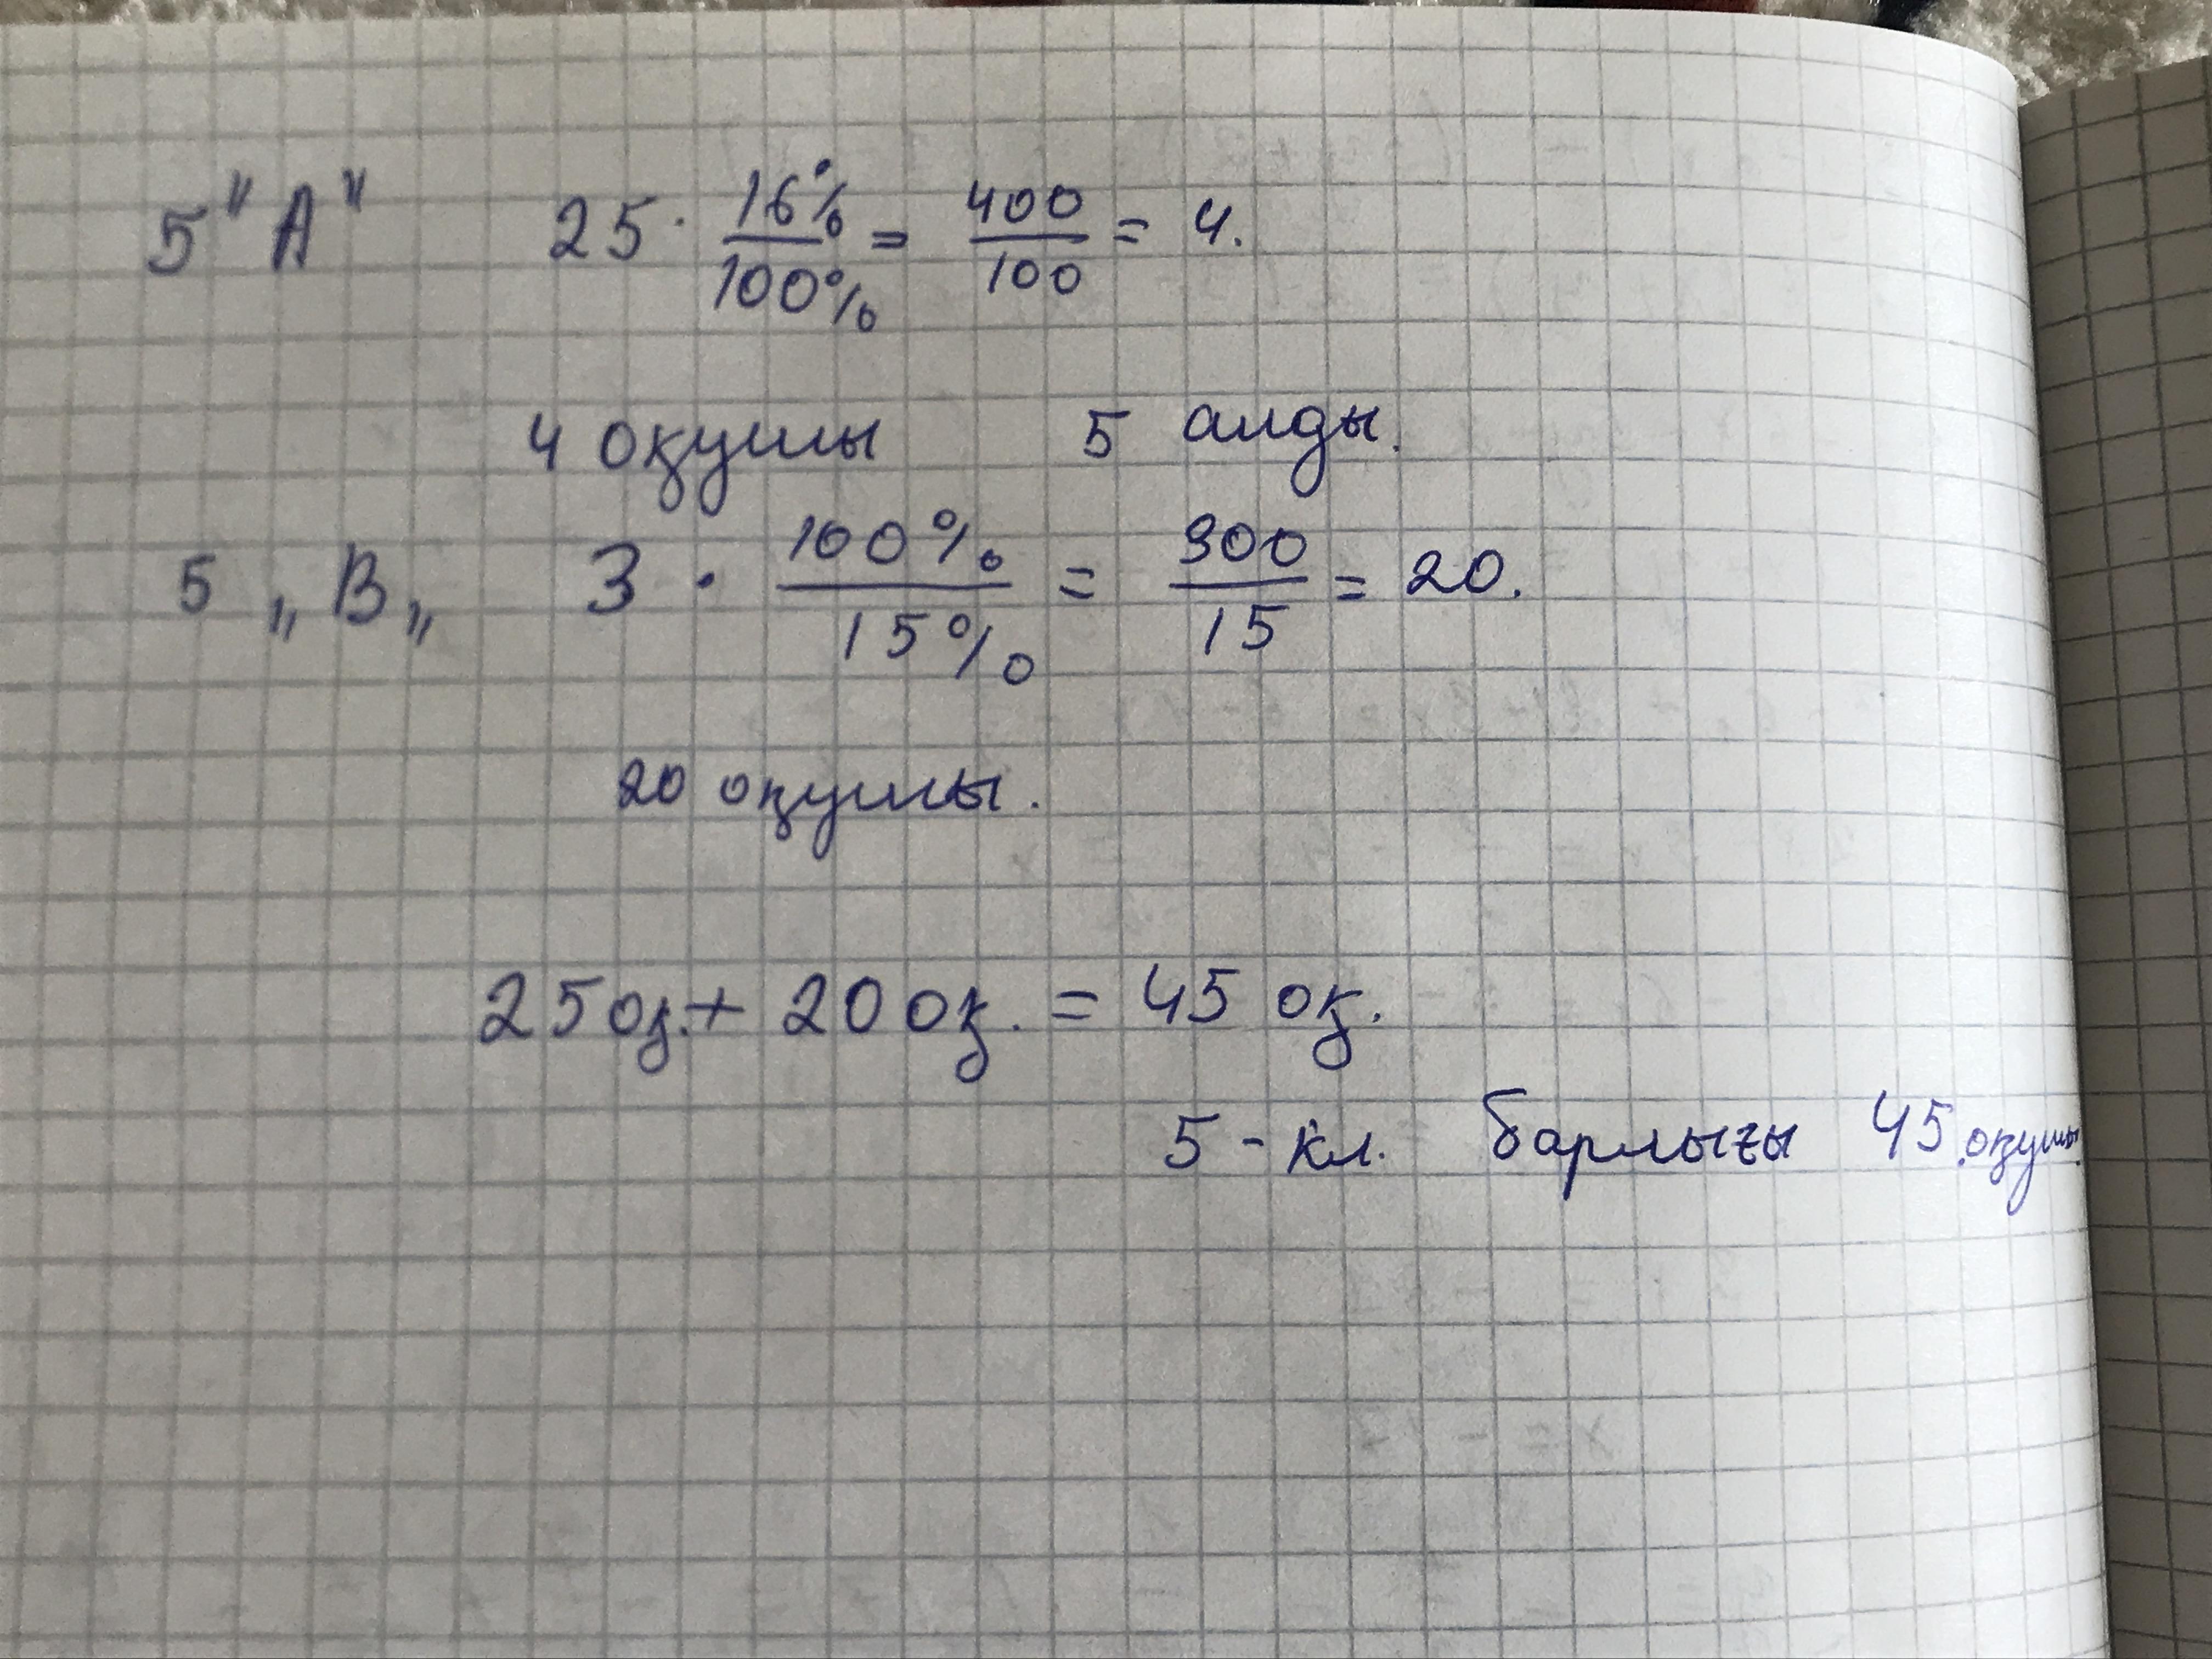 5 "А" 25 · 16%/100% = 400/100 = 4.
4 оқушы 5 алды.
5 „В„ 3 · 100%/15% = 300/15 = 20.
20 оқушы.
25 оқ. + 20 оқ. = 45 оқ.
5 - кл. барлығы 45 оқушы.